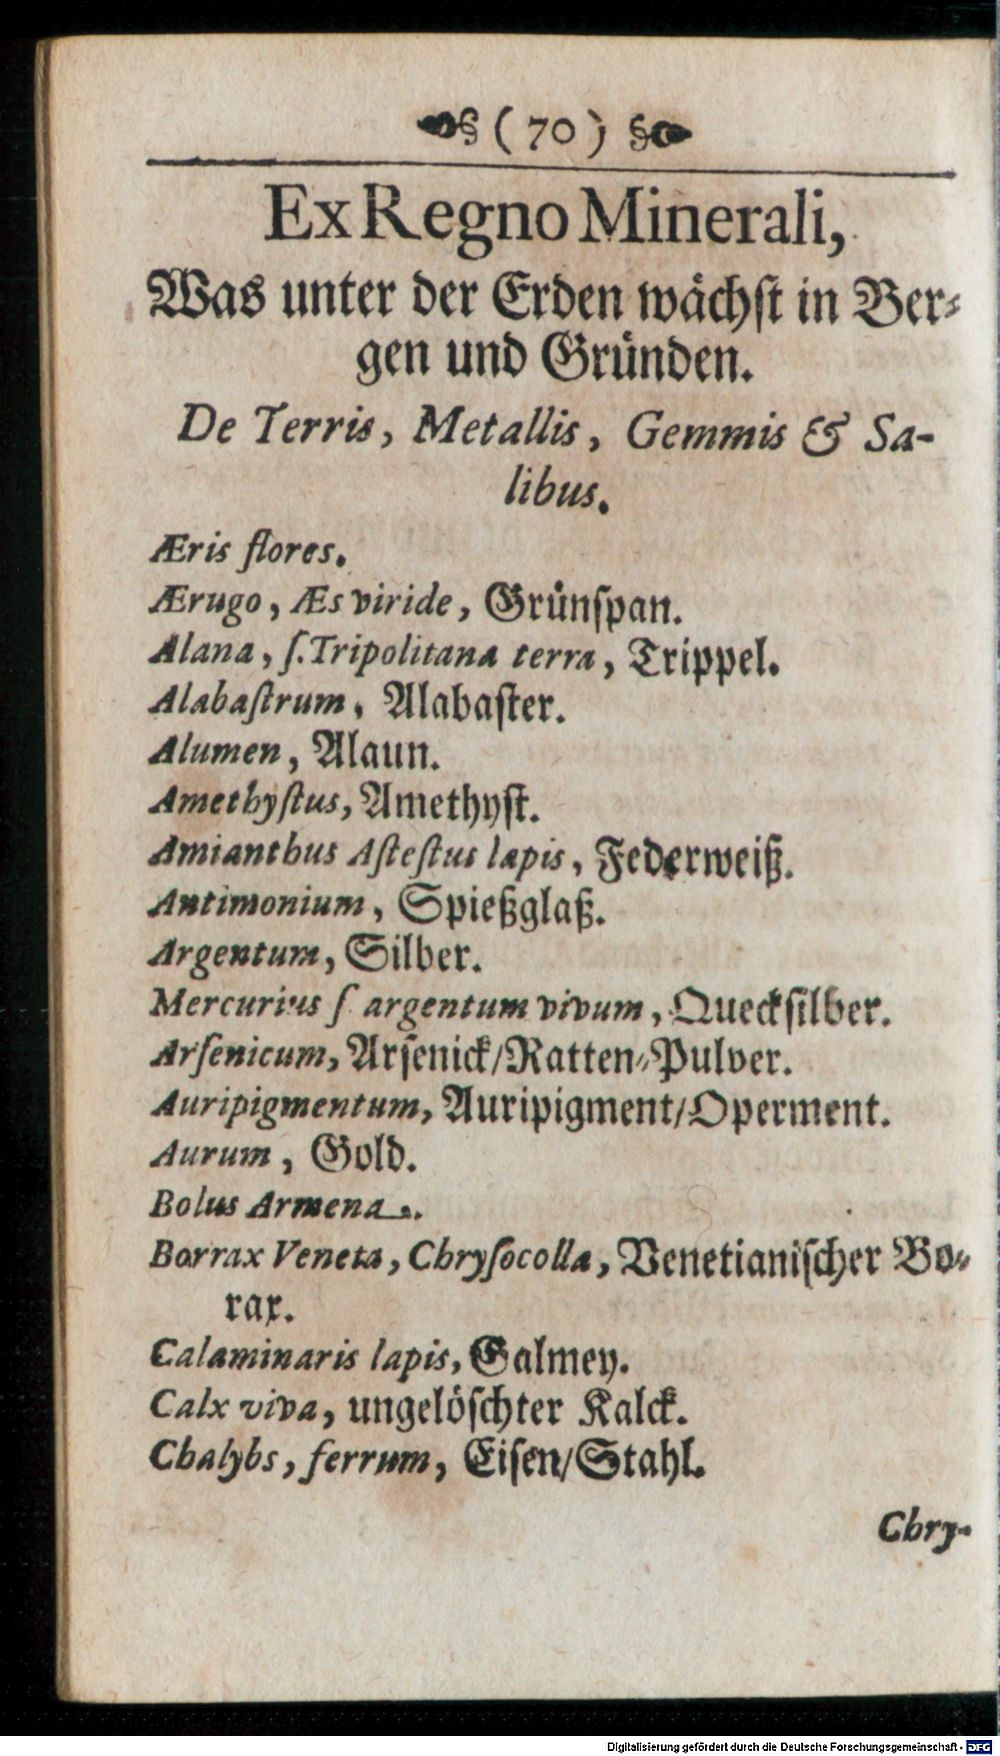 § ( 70 ) §
Ex Regno Minerali,
Was unter der Erden wächst in Ber-
gen und Gründen.
De Terris, Metallis, Gemmis & Sa-
libus.
Æris flores.
Ærugo, Æs viride, Grünspan.
Alana, ſ. Tripolitana terra, Trippel.
Alabaſtrum, Alabaſter.
Alumen, Alaun.
Amethyſtus, Amethyſt.
Amianthus Aſteſtus lapis, Federweiß.
Antimonium, Spießglaß.
Argentum, Silber.
Mercurius ſ. argentum vivum, Queckſilber.
Arſenicum, Arſenick/Ratten-Pulver.
Auripigmentum, Auripigment/Operment.
Aurum, Gold.
Bolus Armena.
Borrax Veneta, Chryſocolla, Venetianiſcher Bo-
rax.
Calaminaris lapis, Galmey.
Calx viva, ungelöſchter Kalck.
Chalybs, ferrum, Eiſen/Stahl.
Chry-
Digitalisierung gefördert durch die Deutsche Forschungsgemeinschaft - DFG